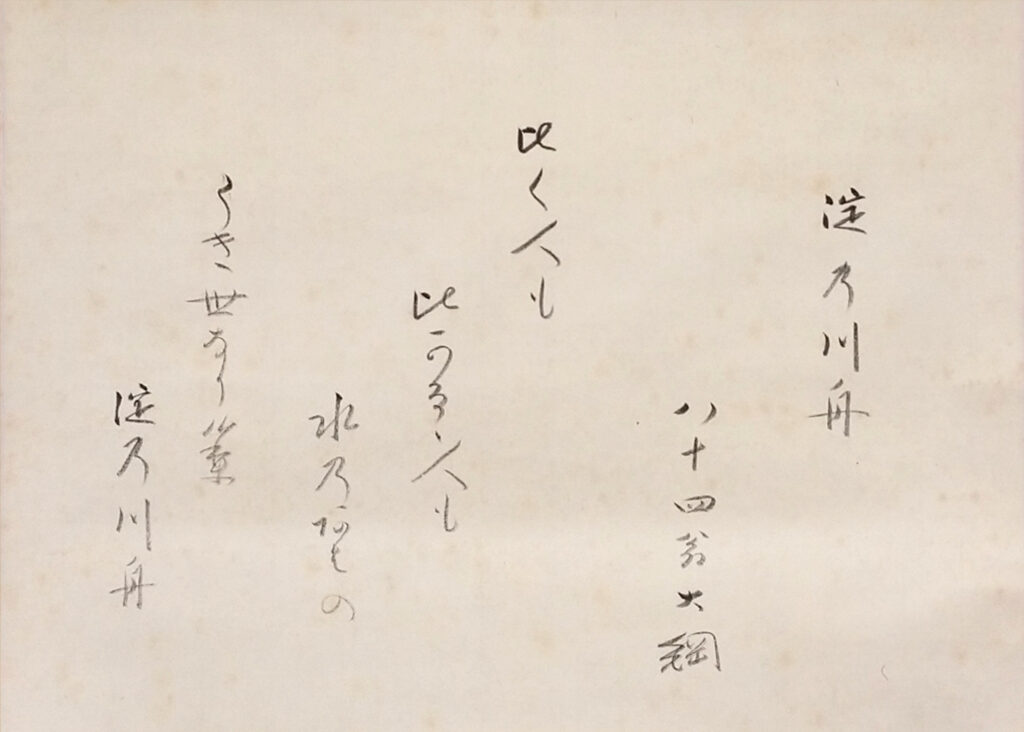 淀乃川舟
八十四翁大綱
比く人も
比可るゝ人も
水乃阿はの
うき世なり
淀乃川舟